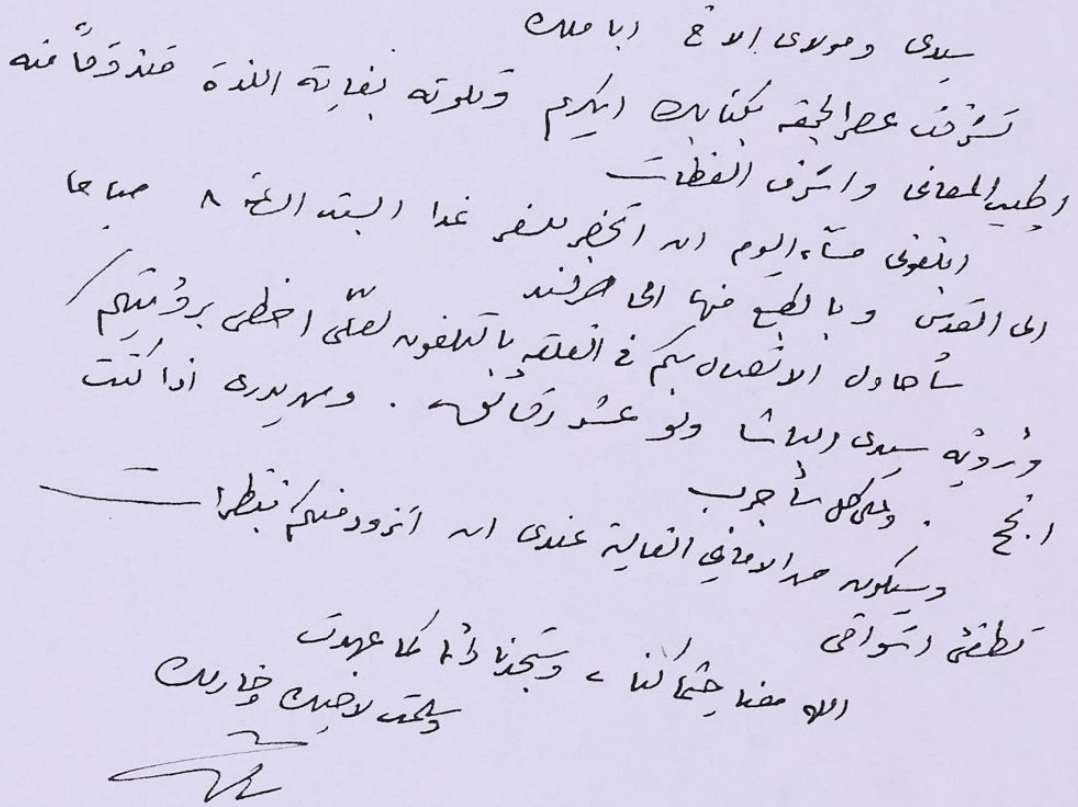 سيدى ومولاى الاخ ابا ملك
تشرفت عصر الجمعه بكتابك الكريم وتلوته بغاية اللذة متذوقاً منه
اطيب المعانى واشرف العظات
ابلغونى مساء اليوم ان اتحضر للسفر غدا السبت الساعة ٨ صباحا
الى القدس وبالطبع منها الى
سأحاول الاتصال بكم فى القلعه بالتلفون لعلّى احظى برؤيتكم
ورؤية سيدى الباشا ولو عشر دقائق . ومن يدرى اذا كنت
انجح . وعلى كل سأجرب
وسيكون من الامانى الغالية عندى ان اتزود منكم بنظرات
تطفئ اشواقى
الله معنا حيثما كنا ، وستجدنا دائما كما عهدت
وسلمت لاخيك